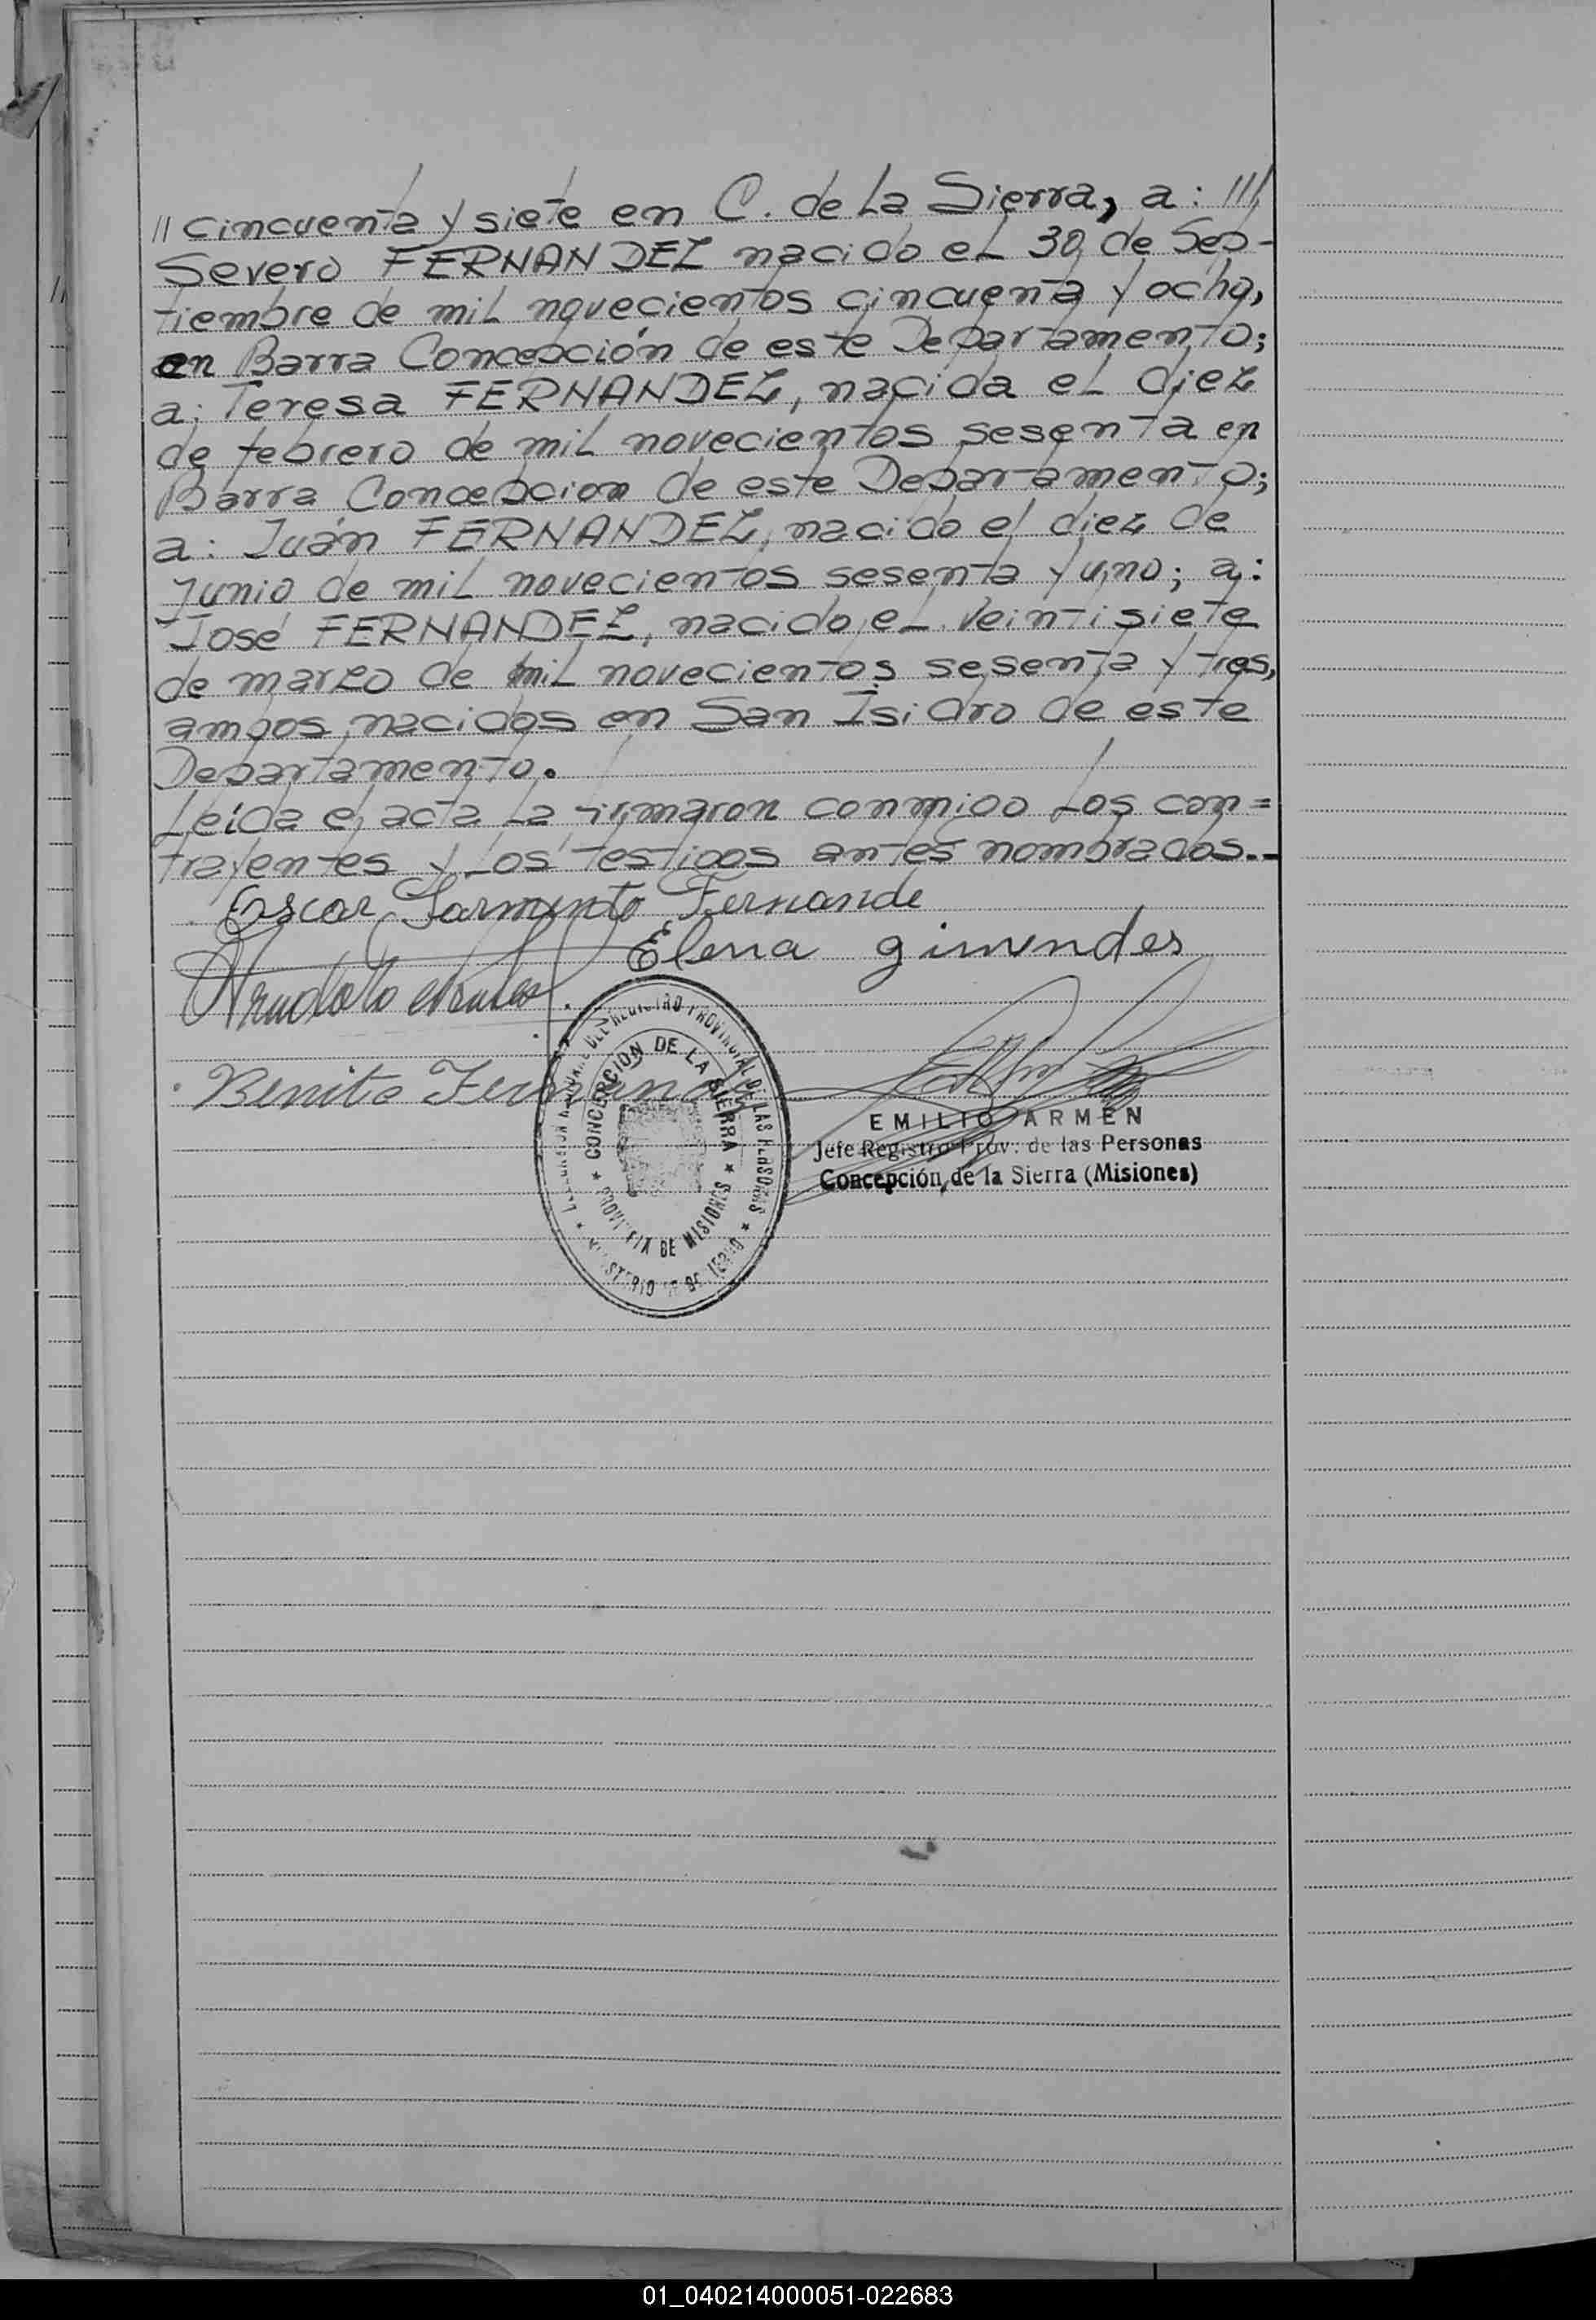 // cincuenta y siete en C. de La Sierra, a: ///
Severo FERNANDEZ nacido el 30 de Sep-
tiembre de mil novecientos cincuenta y ocho,
en Barra Concepción de este Departamento;
a: Teresa FERNANDEZ, nacida el diez
de febrero de mil novecientos sesenta en
Barra Concepcion de este Departamento;
a: Juán FERNANDEZ, nacido el diez de
Junio de mil novecientos sesenta y uno; a:
José FERNANDEZ, nacido el veintisiete
de marzo de mil novecientos sesenta y tres,
ambos nacidos en San Isidro de este
Departamento.
Leida el acta la firmaron conmigo los con=
trayentes y los testigos antes nombrados.-
Oscar Sarmento Fernande
Elena gimendes
Benito
CONCEPCION DE LA SIERRA
PROVINCIA DE MISIONES
REGISTRO PROVINCIAL DE LAS PERSONAS
MINISTERIO DE GOBIERNO
EMILIO ARMEN
Jefe Registro Prov. de las Personas
Concepción de la Sierra (Misiones)
01_040214000051-022683